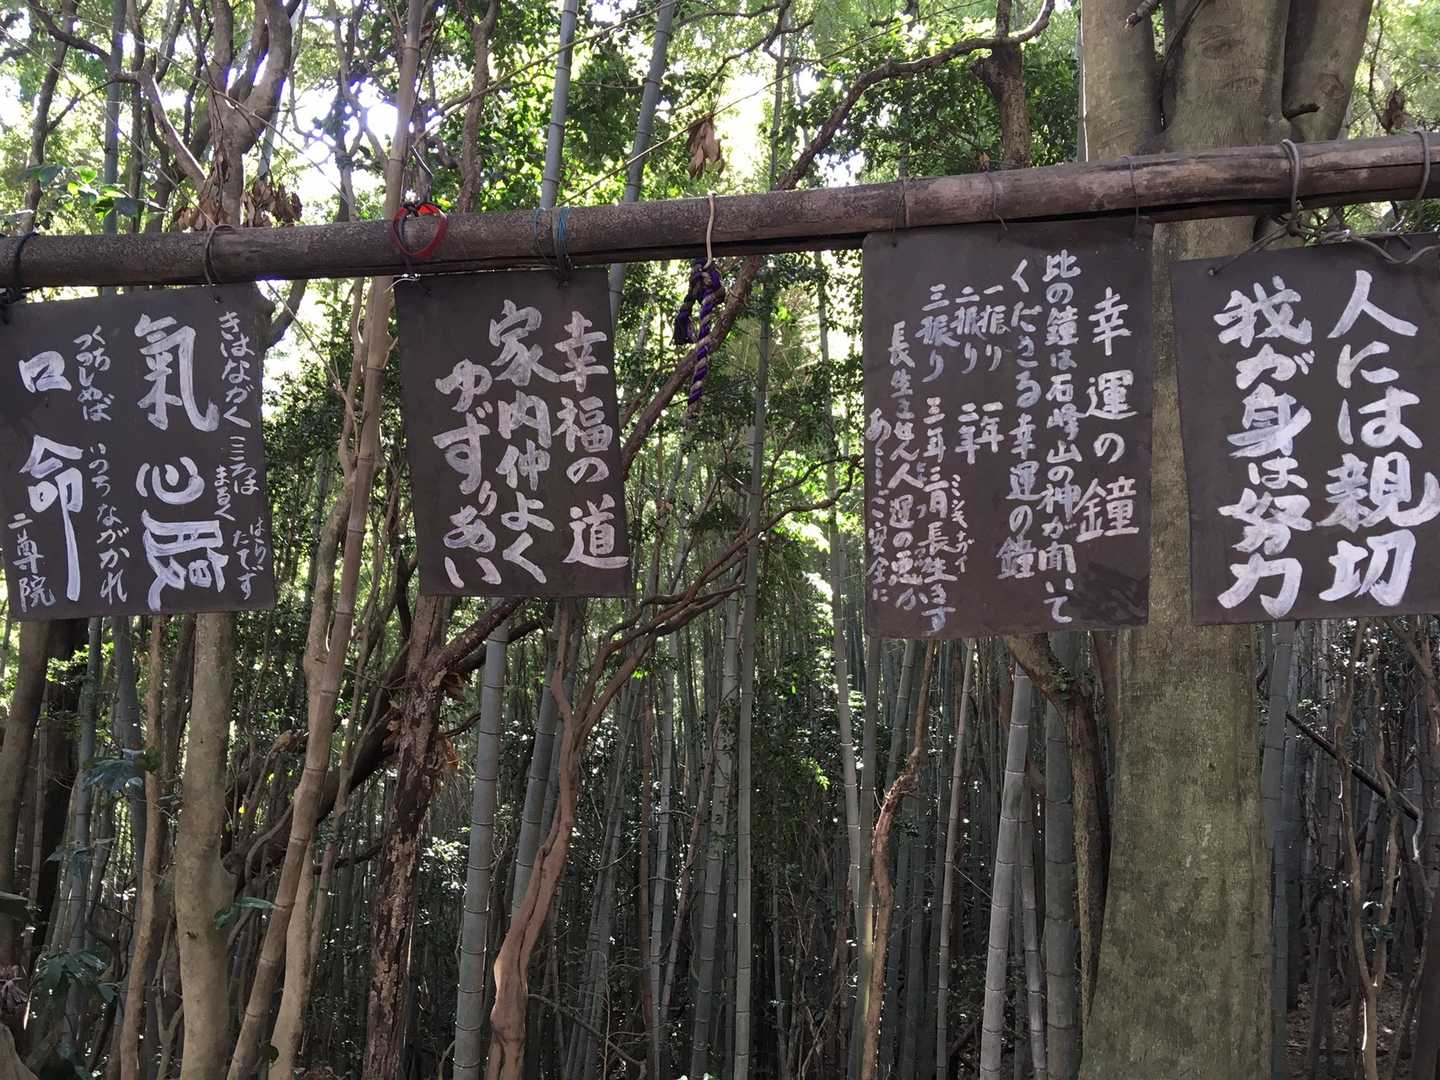 人には親切
我が身は努力
幸運の鐘
此の鐘は石峰山の神が聞いて
くださる幸運の鐘
一振り 一年
二振り 二年
三振り 三年 三月 長生きす
長生きせん人 運の悪か
あとごご安全に
幸福の道
家内仲よく
ゆずりあい
きはながく こころは まるく はらたてず
氣 心 腹
くちしめば いのちながかれ
口 命
二尊院